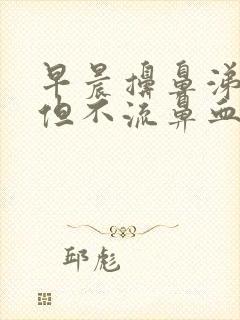 早晨擤鼻涕
但不流鼻血
邱彪